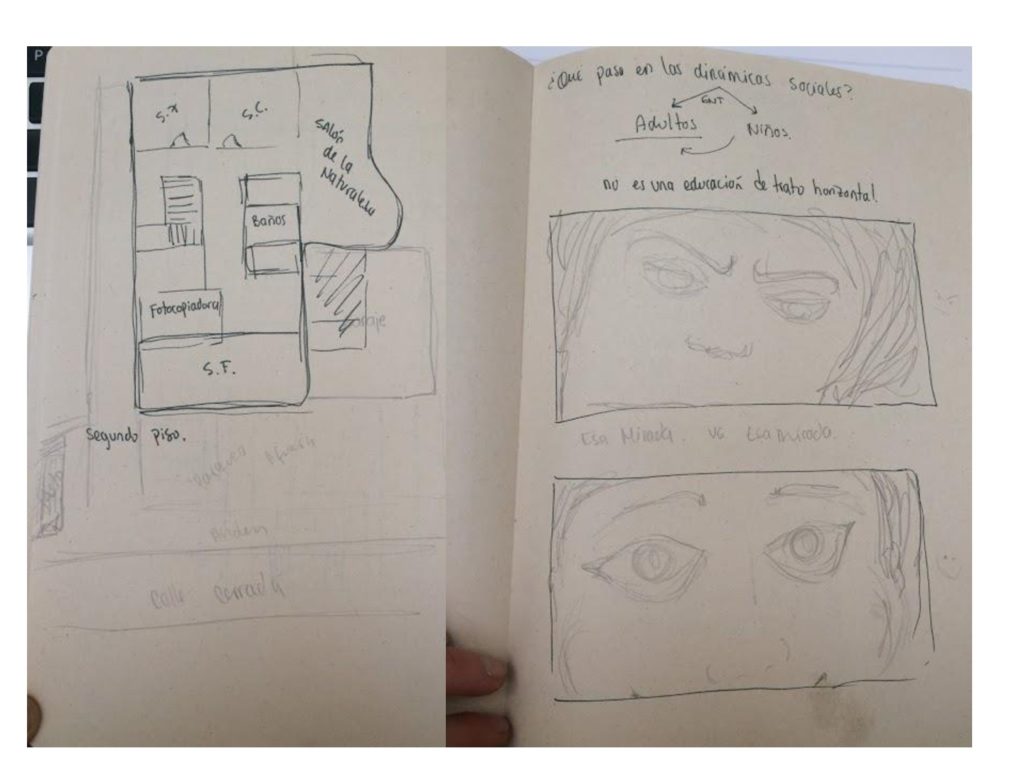 P
S.C.
Salón
de la
Naturaleza
Baños
Fotocopiadora
S.F.
Segundo piso.
Anden
Calle Cerrada
¿Qué pasa en las dinámicas sociales?
Adultos
Niños.
no es una educación de trato horizontal.
Esa Mirada. vs Esa mirada.